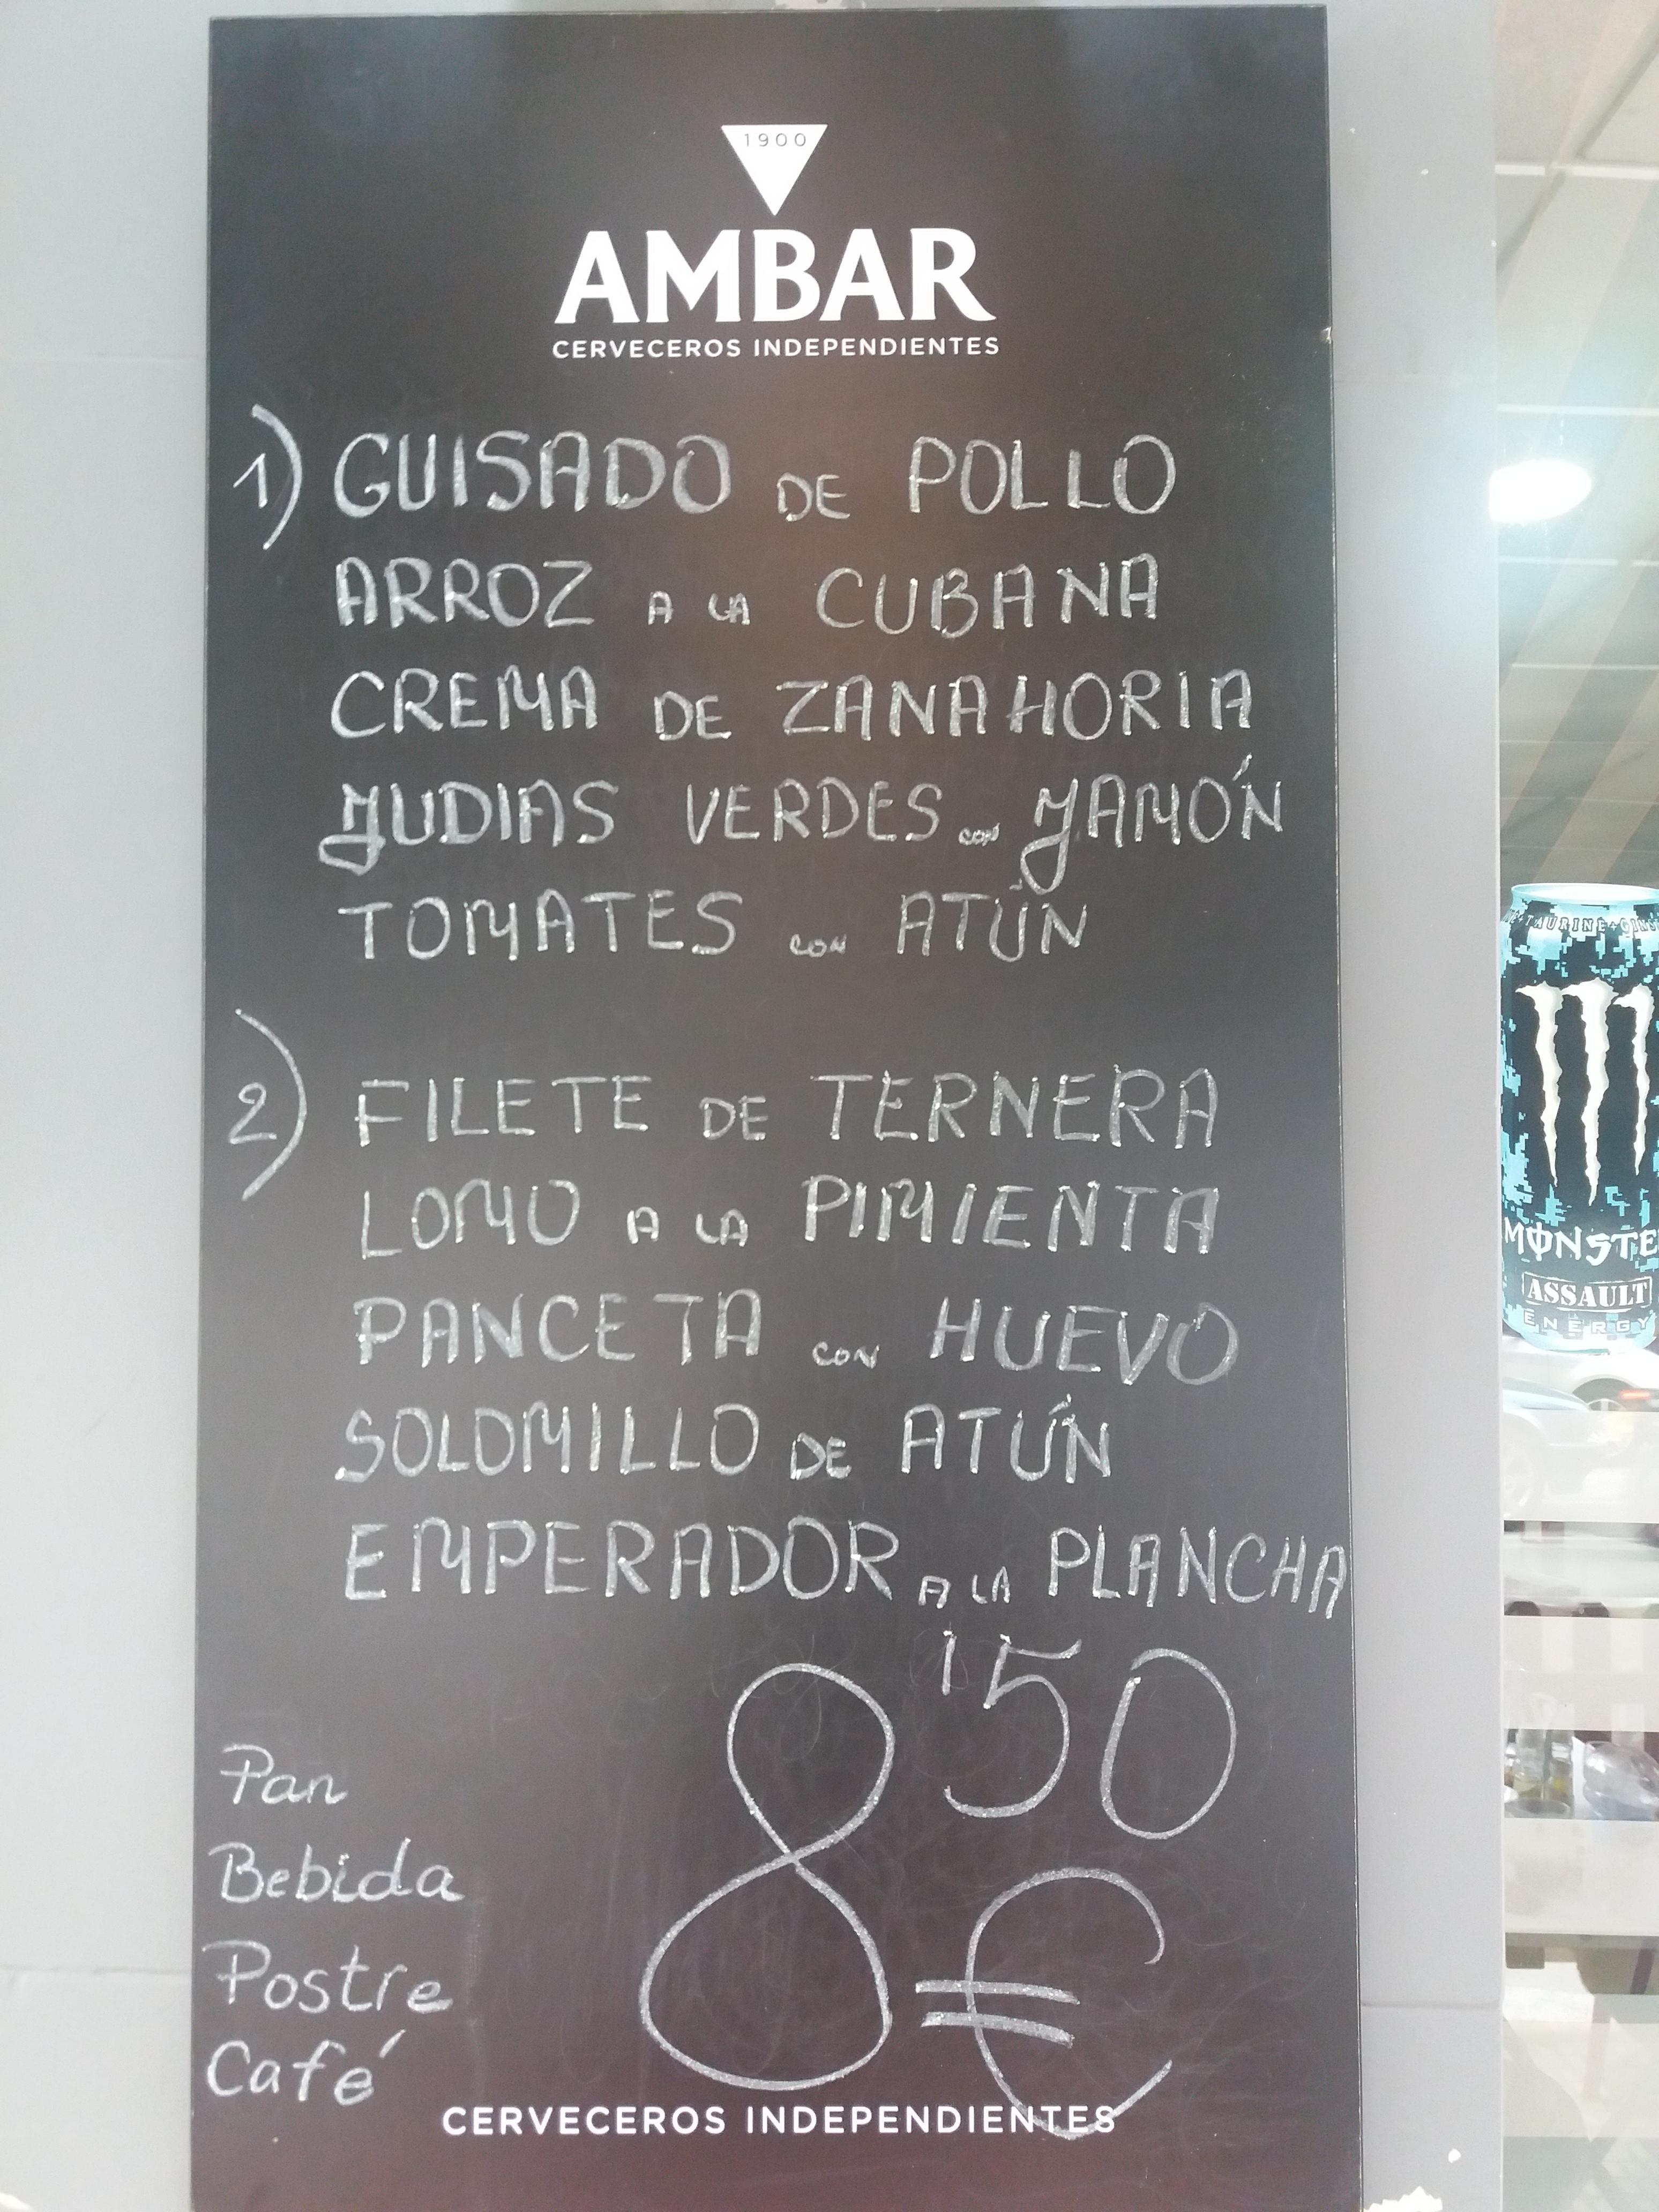 1900
AMBAR
CERVECEROS INDEPENDIENTES
1) GUISADO DE POLLO
ARROZ A LA CUBANA
CREMA DE ZANAHORIA
JUDIAS VERDES con JAMÓN
TOMATES con ATÚN
2) FILETE DE TERNERA
LOMO A LA PIMIENTA
PANCETA con HUEVO
SOLOMILLO DE ATÚN
EMPERADOR A LA PLANCHA
8'50 €
Pan
Bebida
Postre
Café
CERVECEROS INDEPENDIENTES
TAURINE+GINS
MONSTE
ASSAULT
ENERGY